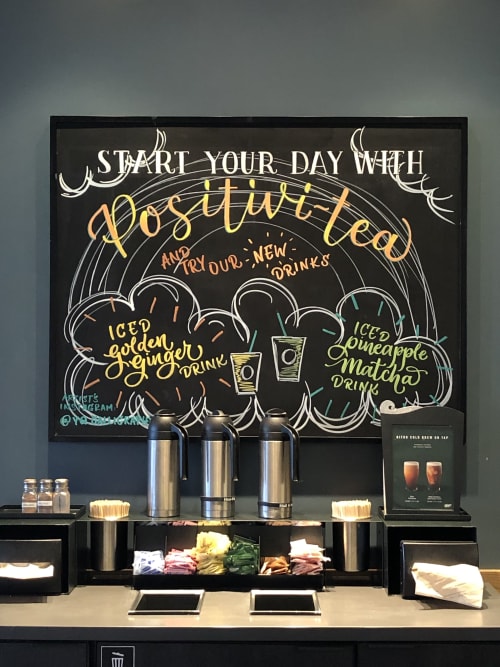 START YOUR DAY WITH
Positivi-tea
AND TRY OUR NEW DRINKS
ICED
golden
ginger
DRINK
ICED
pineapple
Matcha
DRINK
ARTIST'S
INSTAGRAM
NITRO COLD BREW ON TAP